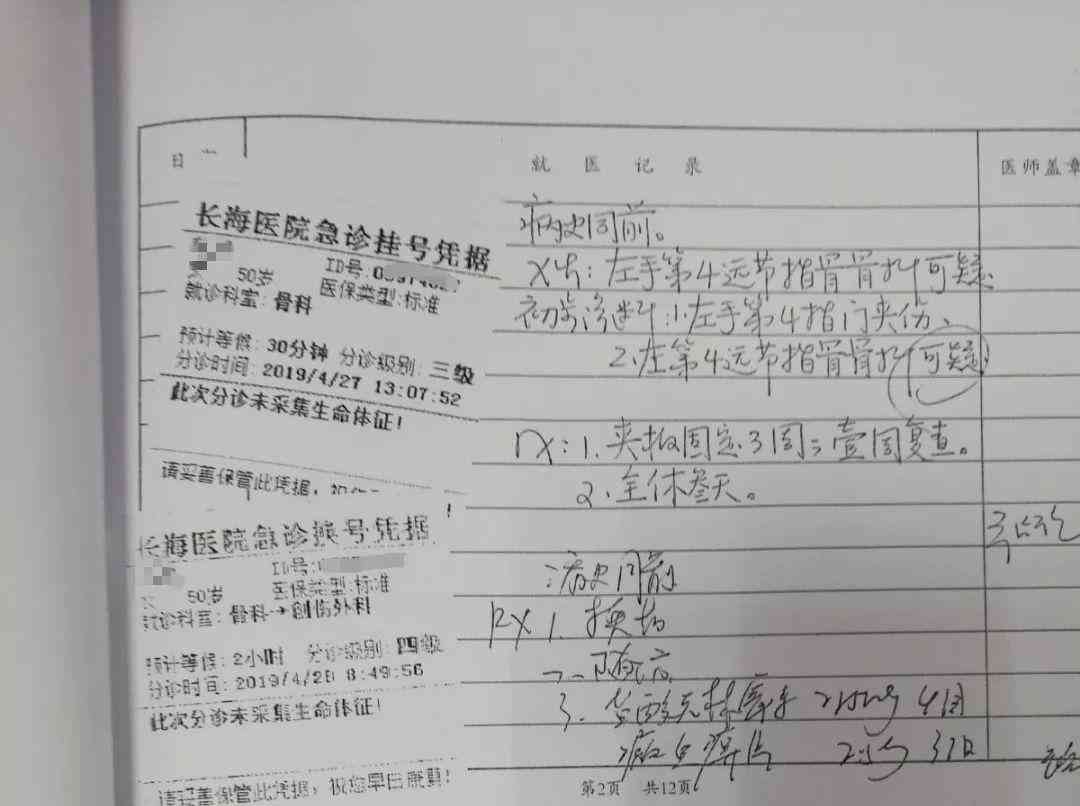 日
就 医 记 录
医师盖章
长海医院急诊挂号凭据
ID号:
女 50岁
医保类型:标准
就诊科室: 骨科
预计等候: 30分钟 分诊级别: 三级
分诊时间: 2019/4/27 13:07:52
此次分诊未采集生命体征!
请妥善保管此凭据,
病史同前。
X片: 左手第4远节指骨骨折可疑
初步诊断: 1.左手第4指门夹伤、
2.左第4远节指骨骨折可疑
rx: 1. 夹板固定3周; 壹周复查。
2. 全休叁天。
长海医院急诊挂号凭据
ID号:
女 50岁
医保类型:标准
就诊科室: 骨科→创伤外科
预计等候: 2小时 分诊级别: 四级
分诊时间: 2019/4/28 8:49:56
此次分诊未采集生命体征!
请妥善保管此凭据, 祝您早日康复!
: 病史同前
RX 1. 换药
3.
第2页 共12页